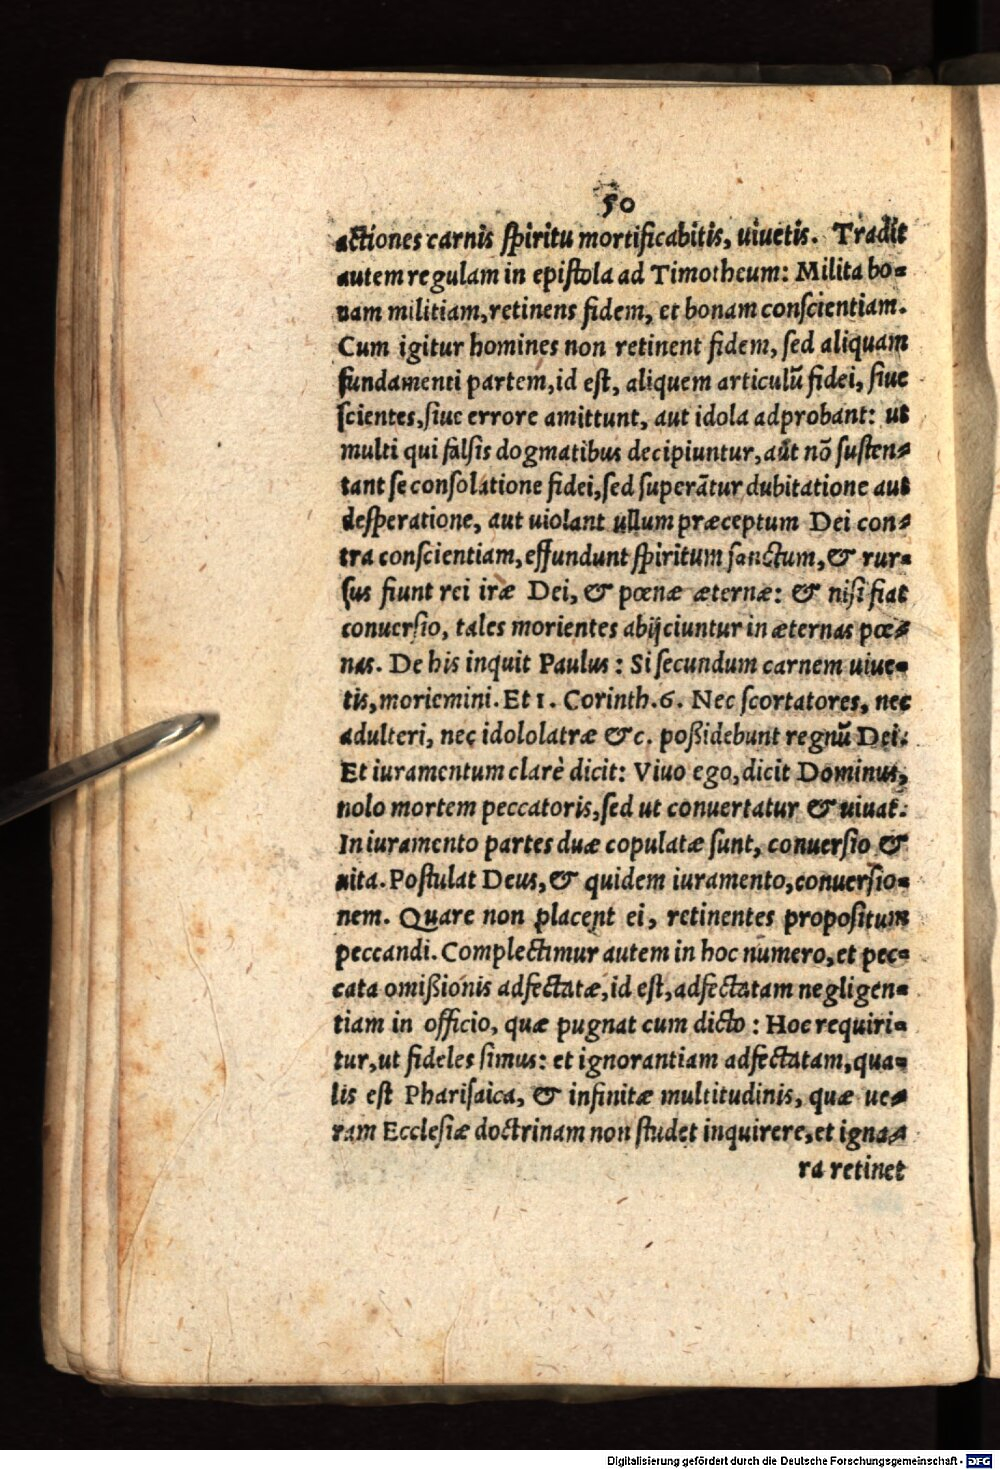 50
actiones carnis spiritu mortificabitis, uiuetis. Tradit
autem regulam in epistola ad Timotheum: Milita bo-
nam militiam, retinens fidem, et bonam conscientiam.
Cum igitur homines non retinent fidem, sed aliquam
fundamenti partem, id est, aliquem articulū fidei, siue
scientes, siue errore amittunt, aut idola adprobant: ut
multi qui falsis dogmatibus decipiuntur, aut nō susten-
tant se consolatione fidei, sed superātur dubitatione aut
desperatione, aut uiolant ullum præceptum Dei con-
tra conscientiam, effundunt spiritum sanctum, & rur-
sus fiunt rei iræ Dei, & pœnæ æternæ: & nisi fiat
conuersio, tales morientes abijciuntur in æternas pœ-
nas. De his inquit Paulus: Si secundum carnem uiue-
tis, moriemini. Et 1. Corinth. 6. Nec scortatores, nec
adulteri, nec idololatræ &c. poßidebunt regnū Dei.
Et iuramentum clarè dicit: Viuo ego, dicit Dominus,
nolo mortem peccatoris, sed ut conuertatur & uiuat.
In iuramento partes duæ copulatæ sunt, conuersio &
uita. Postulat Deus, & quidem iuramento, conuersio-
nem. Quare non placent ei, retinentes propositum
peccandi. Complectimur autem in hoc numero, et pec-
cata omißionis adfectatæ, id est, adfectatam negligen-
tiam in officio, quæ pugnat cum dicto: Hoc requiri-
tur, ut fideles simus: et ignorantiam adfectatam, qua-
lis est Pharisaica, & infinitæ multitudinis, quæ ue-
ram Ecclesiæ doctrinam non studet inquirere, et igna-
ra retinet
Digitalisierung gefördert durch die Deutsche Forschungsgemeinschaft - DFG